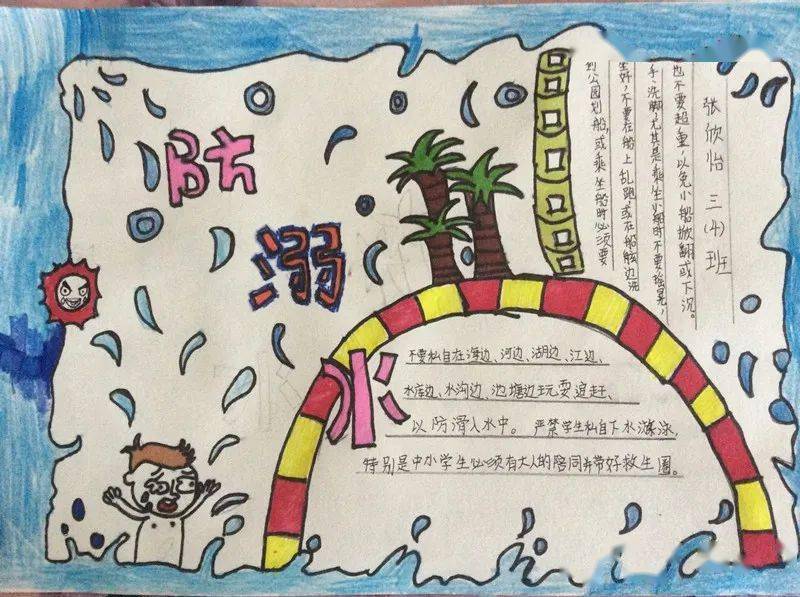 防
溺
水
张欣怡 三(4)班
到公园划船,或乘坐船时必须要
坐好,不要在船上乱跑或在船舷边洗
手、洗脚,尤其是乘坐小船时不要摇晃,
也不要超重,以免小船掀翻或下沉。
不要私自在海边、河边、湖边、江边、
水库边、水沟边、池塘边玩耍追赶、
以防滑入水中。严禁学生私自下水游泳,
特别是中小学生必须有大人的陪同并带好救生圈。